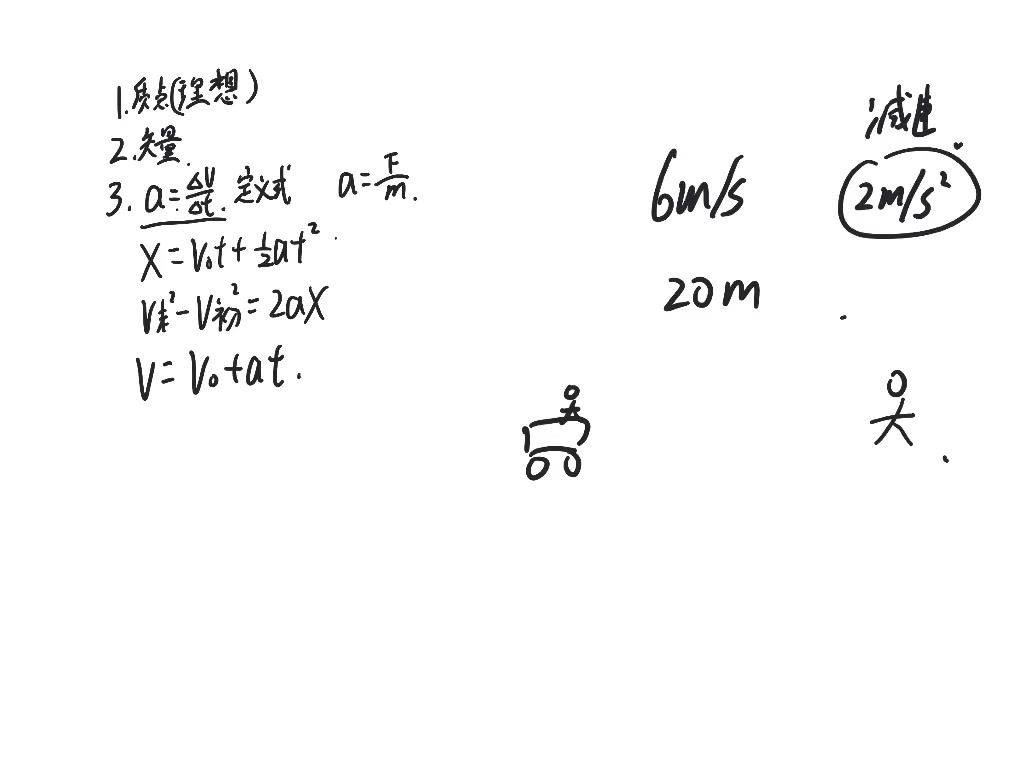 1.质点(理想)
2.矢量.
3. a=ΔV/Δt. 定义式 a=F/m.
X=V₀t+½at²
V末²-V初²=2aX
V=V₀+at.
减速.
6m/s 2m/s²
20m